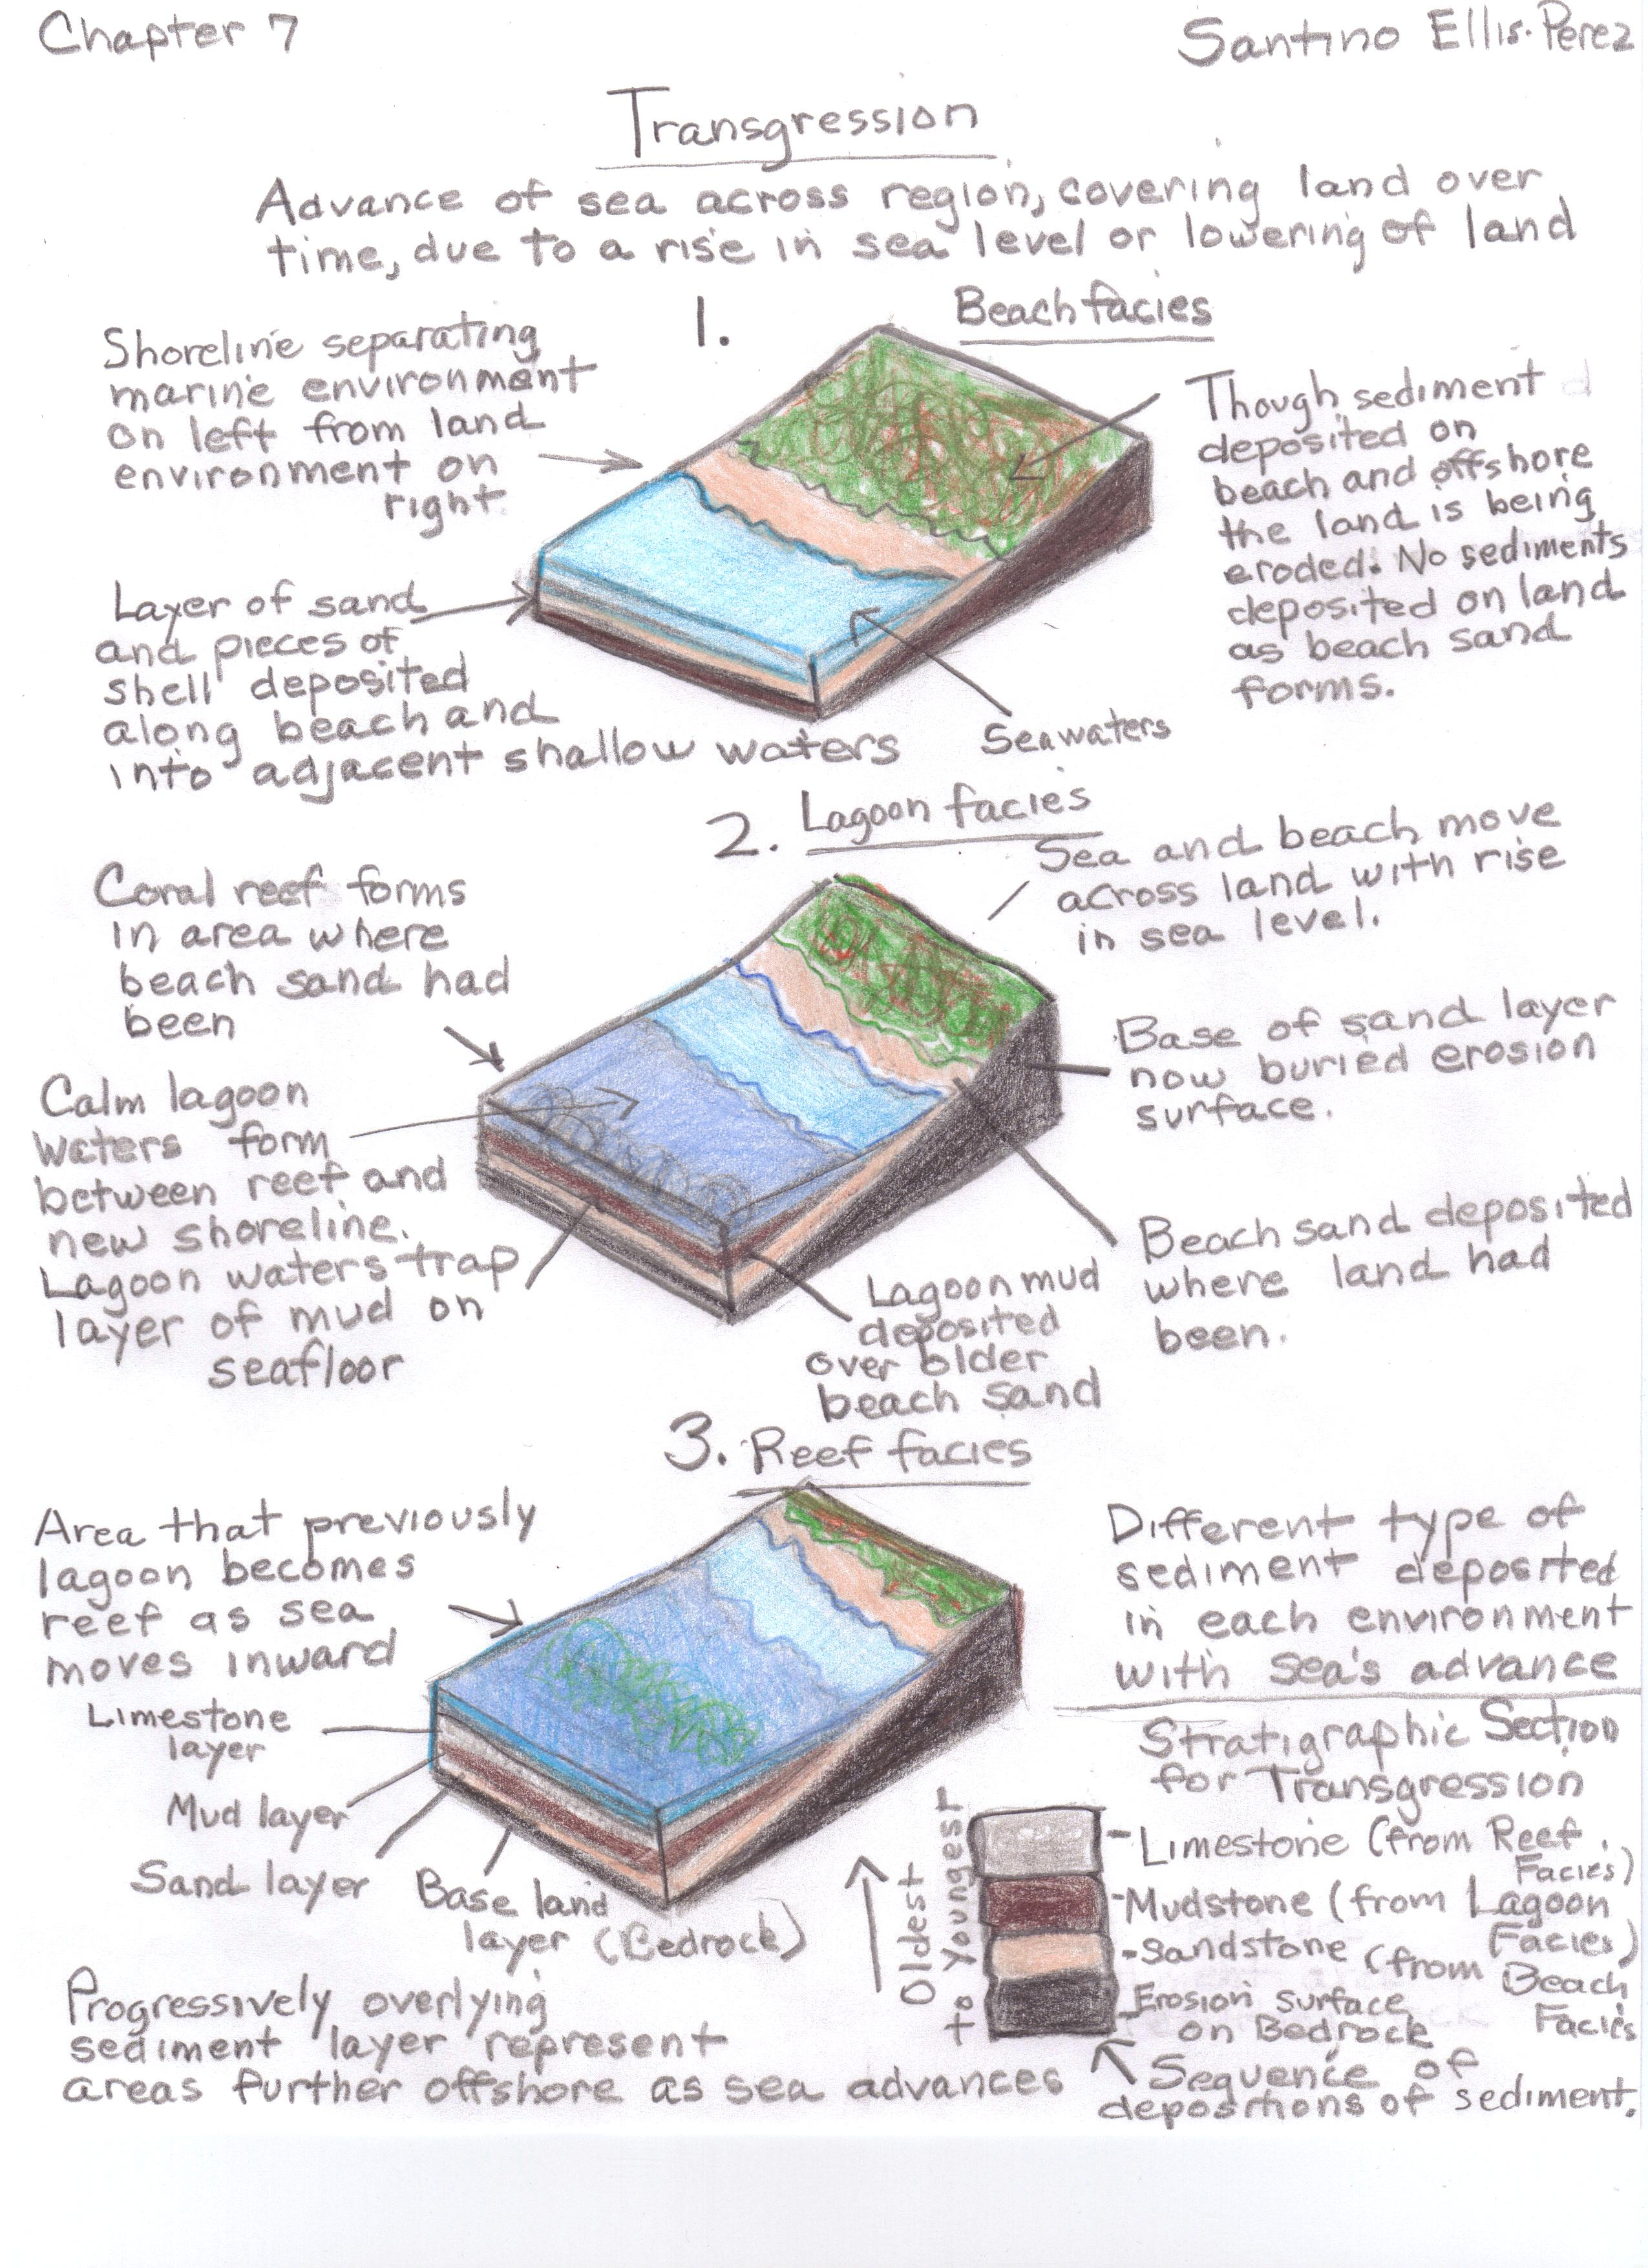 Chapter 7
Santino Ellis-Perez
Transgression
Advance of sea across region, covering land over
time, due to a rise in sea level or lowering of land
1.
Beach facies
Shoreline separating
marine environment
on left from land
environment on
right.
Though sediment
deposited on
beach and offshore
the land is being
eroded. No sediments
deposited on land
as beach sand
forms.
Layer of sand
and pieces of
shell deposited
along beach and
into adjacent shallow waters
Seawaters
2. Lagoon facies
Sea and beach move
across land with rise
in sea level.
Coral reef forms
in area where
beach sand had
been
Base of sand layer
now buried erosion
surface.
Calm lagoon
waters form
between reef and
new shoreline.
Lagoon waters trap
layer of mud on
seafloor
Beach sand deposited
where land had
been.
Lagoon mud
deposited
over older
beach sand
3. Reef facies
Area that previously
lagoon becomes
reef as sea
moves inward
Different type of
sediment deposited
in each environment
with sea's advance
Limestone
layer
Mud layer
Sand layer
Base land
layer (Bedrock)
Stratigraphic Section
for Transgression
Oldest
to Youngest
-Limestone (from Reef
Facies)
-Mudstone (from Lagoon
Facies)
-Sandstone (from Beach
Facies
Erosion surface
on Bedrock
Sequence of
depositions of sediment.
Progressively overlying
sediment layer represent
areas further offshore as sea advances